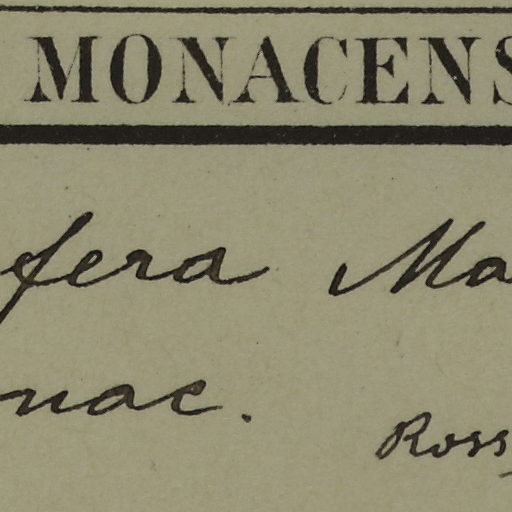 MONACENS
fera Ma
nac.
Ross